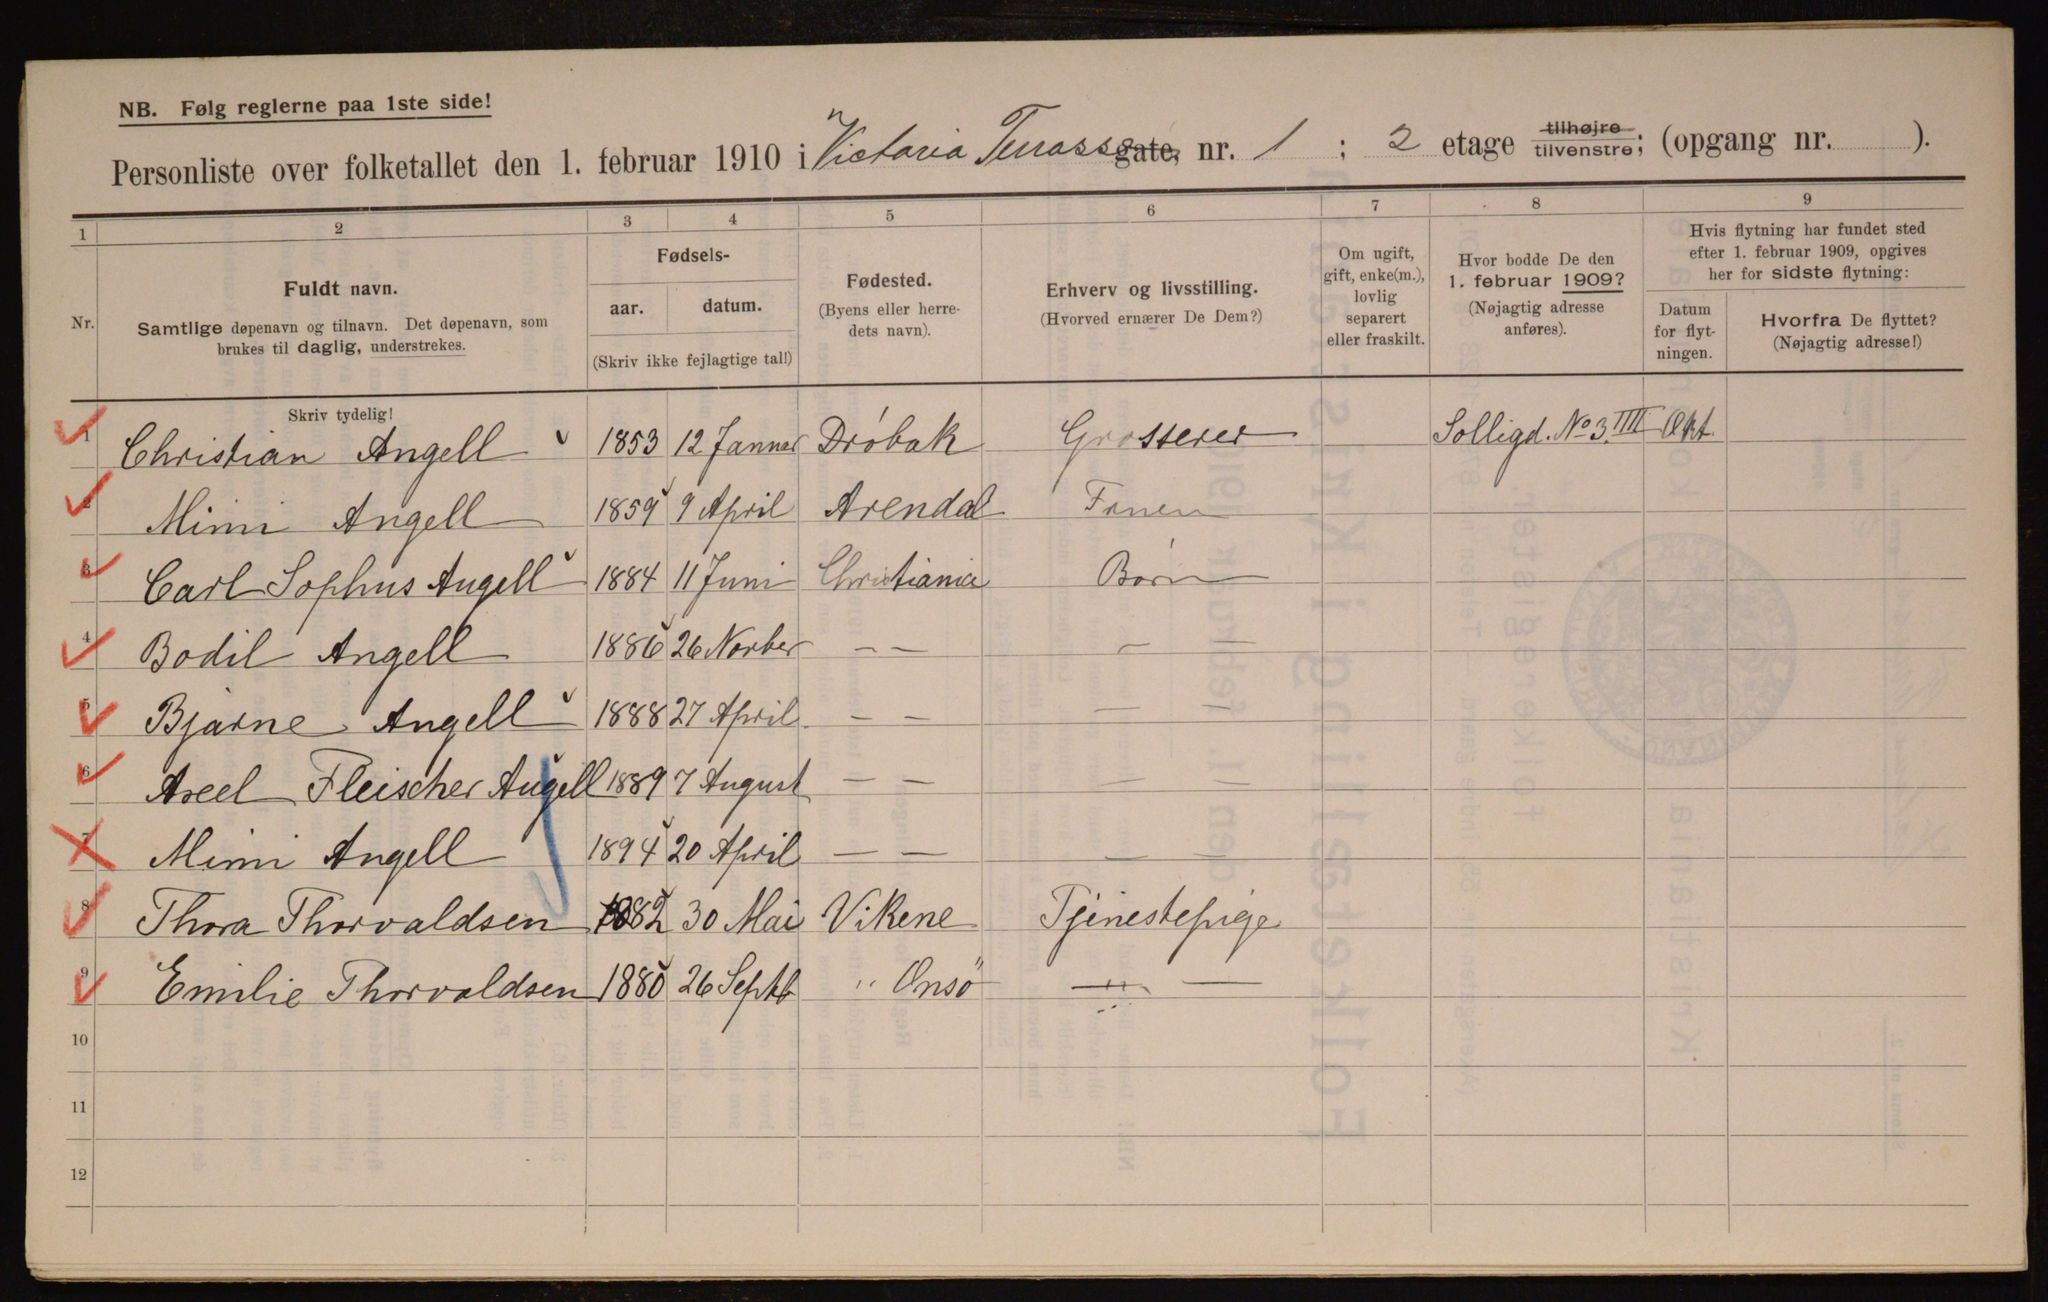 NB. Følg reglerne paa 1ste side!
Personliste over folketallet den 1. februar 1910 i Victoria Terrasse gate, nr. 1 ; 2 etage tilhøjre tilvenstre; (opgang nr. ).
1 2 3 4 5 6 7 8 9
Nr.
Fuldt navn.
Samtlige døpenavn og tilnavn. Det døpenavn, som
brukes til daglig, understrekes.
Skriv tydelig!
Fødsels-
aar. datum.
(Skriv ikke fejlagtige tal!)
Fødested.
(Byens eller herre-
dets navn).
Erhverv og livsstilling.
(Hvorved ernærer De Dem?)
Om ugift,
gift, enke(m.),
lovlig
separert
eller fraskilt.
Hvor bodde De den
1. februar 1909?
(Nøjagtig adresse
anføres).
Hvis flytning har fundet sted
efter 1. februar 1909, opgives
her for sidste flytning:
Datum
for flyt-
ningen.
Hvorfra De flyttet?
(Nøjagtig adresse!)
1 Christian Angell 1853 12 Januar Dröbak Grosserer Solligd. No 3 IIII Okt.
2 Mimi Angell 1859 9 April Arendal Fruen
3 Carl Sophus Angell 1884 11 Juni Christiania Börn
4 Bodil Angell 1886 26 Novber — — — —
5 Bjarne Angell 1888 27 April — — — —
6 Axel Fleischer Angell 1889 7 August — — — —
7 Mimi Angell 1894 20 April — — — —
8 Thora Thorvaldsen 1882 30 Mai Vikene Tjenestepige
9 Emilie Thorvaldsen 1880 26 Septb " Onsö — " —
10
11
12